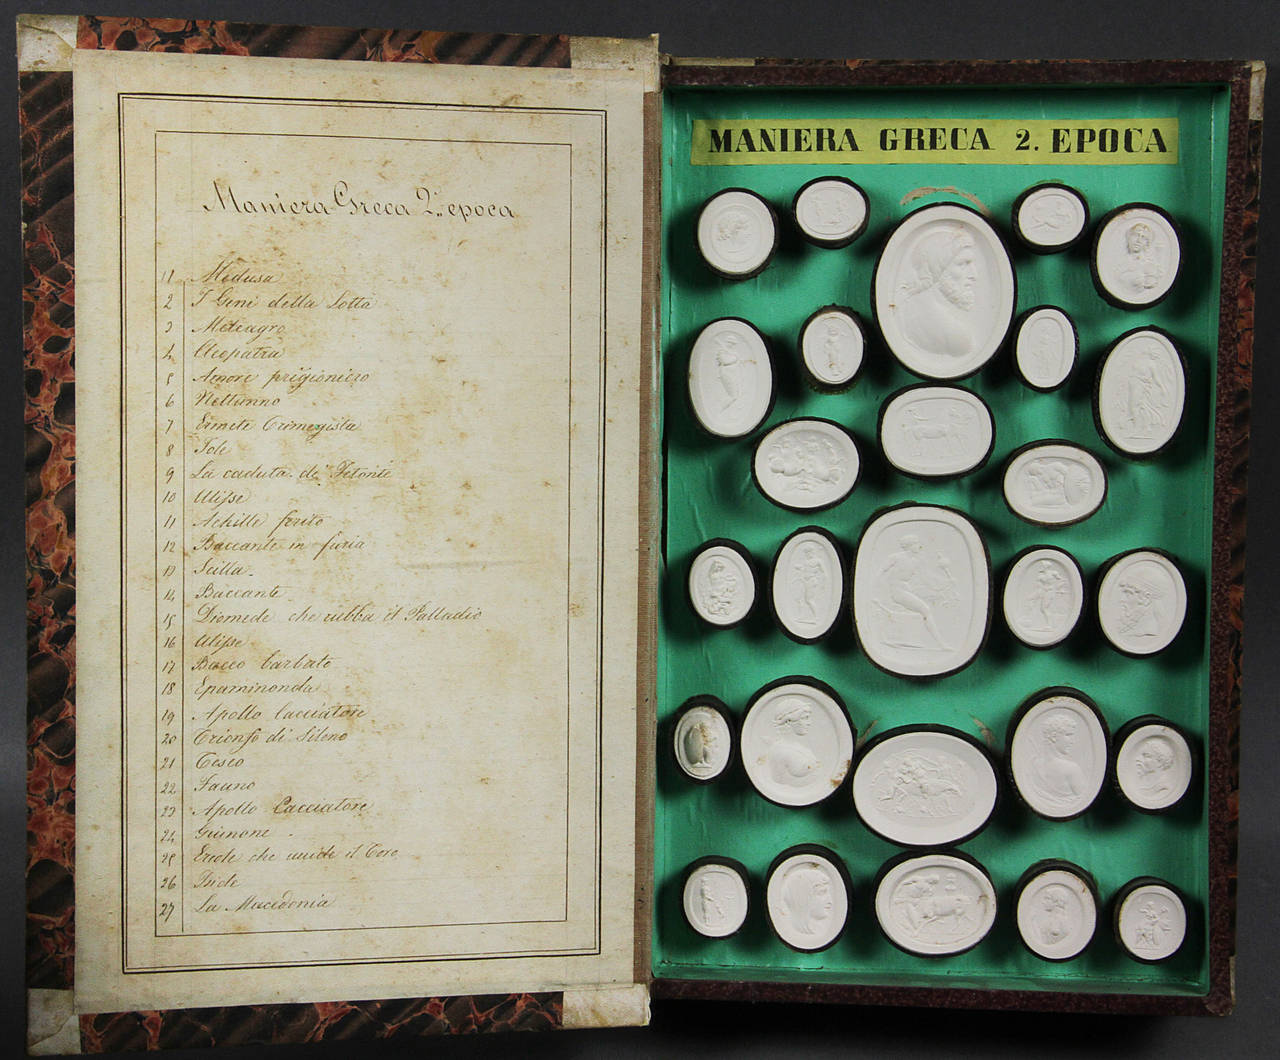 Maniera Greca 2.ª epoca
11 Medusa
2 I Geni della Lotta
3 Meleagro
4 Cleopatra
5 Amore prigioniero
6 Nettunno
7 Ermete Trimegista
8 Iole
9 La caduta di Fetonte
10 Ulisse
11 Achille ferito
12 Baccante in furia
13 Scilla.
14 Baccante
15 Diomede che rubba il Palladio
16 Ulisse
17 Bacco barbato
18 Epaminonda
19 Apollo Cacciatore
20 Trionfo di Sileno
21 Teseo
22 Fauno
23 Apollo Cacciatore
24 Giunone .
25 Ercole che uccide il Toro
26 Iside
27 La Macedonia
MANIERA GRECA 2. EPOCA